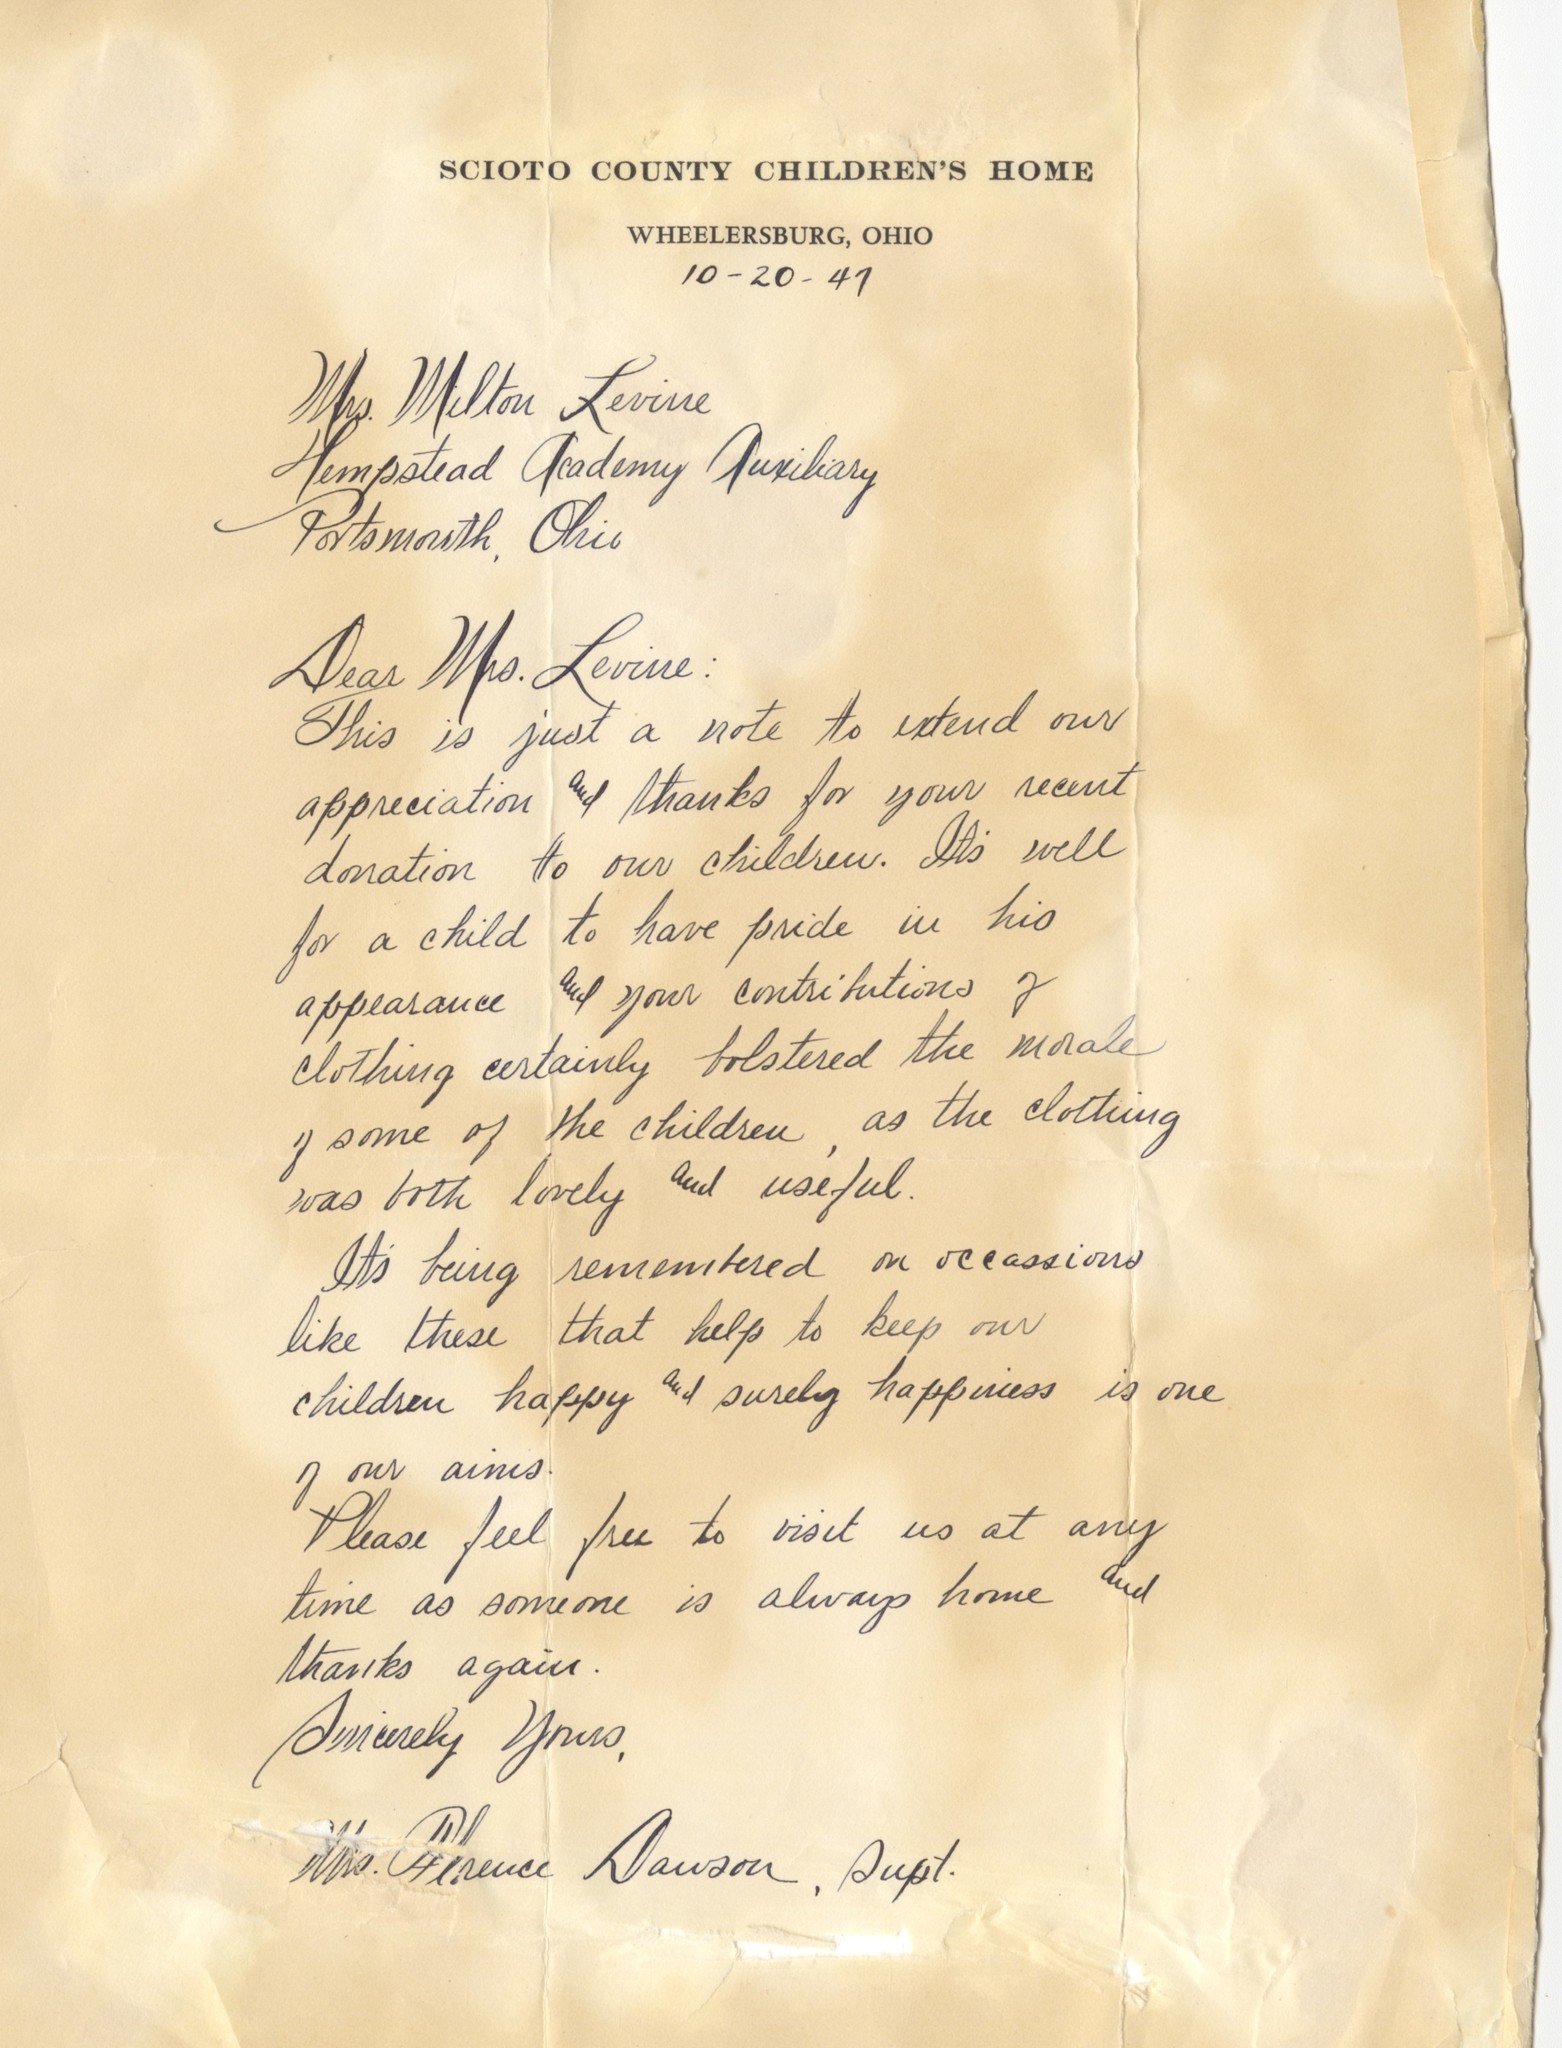 SCIOTO COUNTY CHILDREN'S HOME
WHEELERSBURG, OHIO
10-20-47
Mrs. Milton Levine
Hempstead Academy Auxiliary
Portsmouth, Ohio
Dear Mrs. Levine:
This is just a note to extend our
appreciation and thanks for your recent
donation to our children. It's well
for a child to have pride in his
appearance and your contributions of
clothing certainly bolstered the morale
of some of the children, as the clothing
was both lovely and useful.
It's being remembered on occassions
like these that help to keep our
children happy and surely happiness is one
of our aims.
Please feel free to visit us at any
time as someone is always home and
thanks again.
Sincerely Yours,
Mrs. Florence Dawson, Supt.